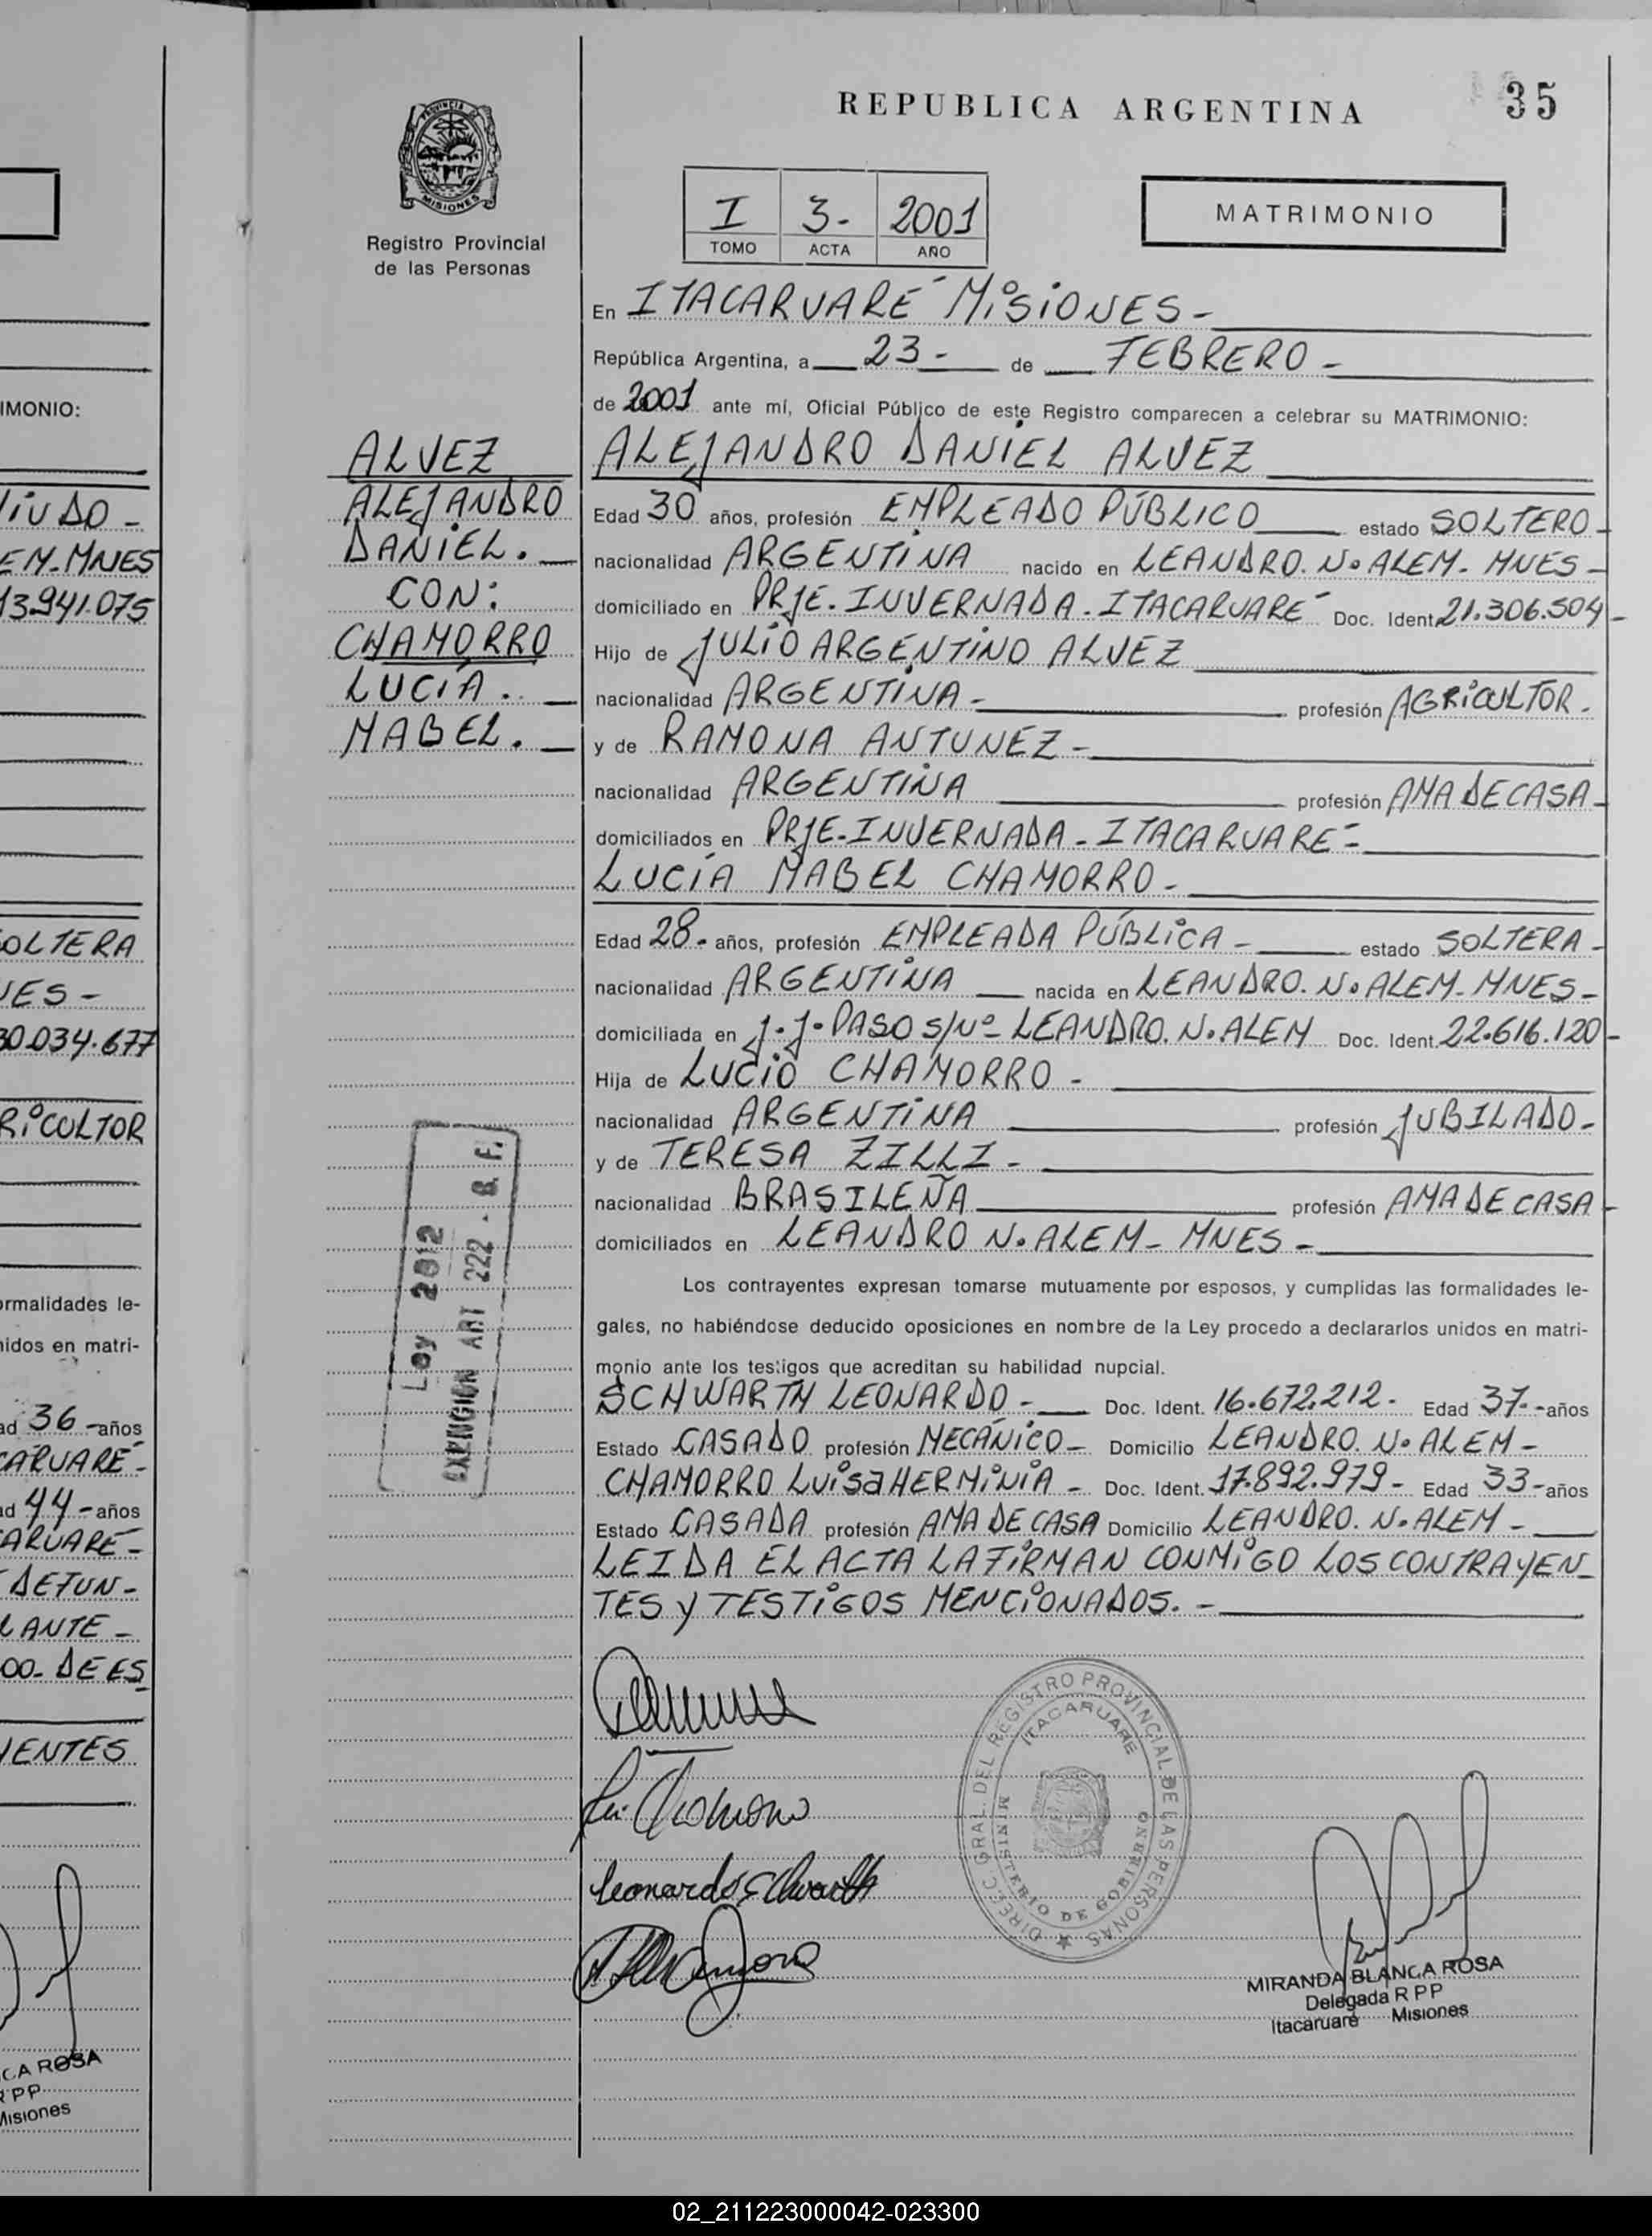 IMONIO:
IUDO -
EM-MNES
13.941.075
SOLTERA
NES -
30.034.677
RICULTOR
ormalidades le-
nidos en matri-
ad 36 -años
CARUARE -
ad 44 - años
ARUARE -
DEFUN-
LANTE -
00- DE ES
YENTES
CA ROSA
R PP
Misiones
PROVINCIA
MISIONES
Registro Provincial
de las Personas
ALVEZ
ALEJANDRO
DANIEL.
CON:
CHAMORRO
LUCÍA.
MABEL.
Ley 2812
EXENCION ART 222. B. F.
REPUBLICA ARGENTINA
35
I 3- 2001
TOMO ACTA AÑO
MATRIMONIO
En ITACARUARÉ MISIONES -
República Argentina, a 23 - de FEBRERO -
de 2001 ante mí, Oficial Público de este Registro comparecen a celebrar su MATRIMONIO:
ALEJANDRO DANIEL ALVEZ
Edad 30 años, profesión EMPLEADO PÚBLICO estado SOLTERO -
nacionalidad ARGENTINA nacido en LEANDRO. N. ALEM - MNES -
domiciliado en PRJE. INVERNADA - ITACARUARÉ Doc. Ident. 21.306.504 -
Hijo de JULIO ARGENTINO ALVEZ
nacionalidad ARGENTINA - profesión AGRICULTOR.
y de RAMONA ANTUNEZ -
nacionalidad ARGENTINA profesión AMA DE CASA -
domiciliados en PRJE - INVERNADA - ITACARUARÉ -
LUCÍA MABEL CHAMORRO -
Edad 28 - años, profesión EMPLEADA PÚBLICA - estado SOLTERA -
nacionalidad ARGENTINA nacida en LEANDRO. N. ALEM - MNES -
domiciliada en J. J. PASO S/Nº - LEANDRO. N. ALEM Doc. Ident. 22.616.120 -
Hija de LUCIO CHAMORRO -
nacionalidad ARGENTINA profesión JUBILADO -
y de TERESA ZILLI -
nacionalidad BRASILEÑA profesión AMA DE CASA -
domiciliados en LEANDRO N. ALEM - MNES -
Los contrayentes expresan tomarse mutuamente por esposos, y cumplidas las formalidades le-
gales, no habiéndose deducido oposiciones en nombre de la Ley procedo a declararlos unidos en matri-
monio ante los testigos que acreditan su habilidad nupcial.
SCHWARTH LEONARDO - Doc. Ident. 16.672.212 - Edad 37 - años
Estado CASADO profesión MECÁNICO - Domicilio LEANDRO. N. ALEM -
CHAMORRO LUISA HERMINIA - Doc. Ident. 17.892.979 - Edad 33 - años
Estado CASADA profesión AMA DE CASA Domicilio LEANDRO. N. ALEM -
LEIDA EL ACTA LA FIRMAN CONMIGO LOS CONTRAYEN-
TES Y TESTIGOS MENCIONADOS. -
Leonardo Schwarth
DIREC. GRAL. DEL REGISTRO PROVINCIAL DE LAS PERSONAS
ITACARUARE
MINISTERIO DE GOBIERNO
MIRANDA BLANCA ROSA
Delegada R P P
Itacaruaré Misiones
02_211223000042-023300